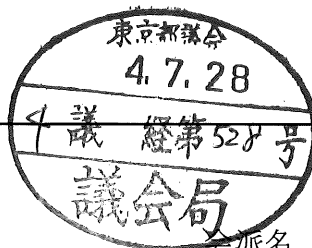 東京都議会
4.7.28
4議経第528号
議会局
会派名